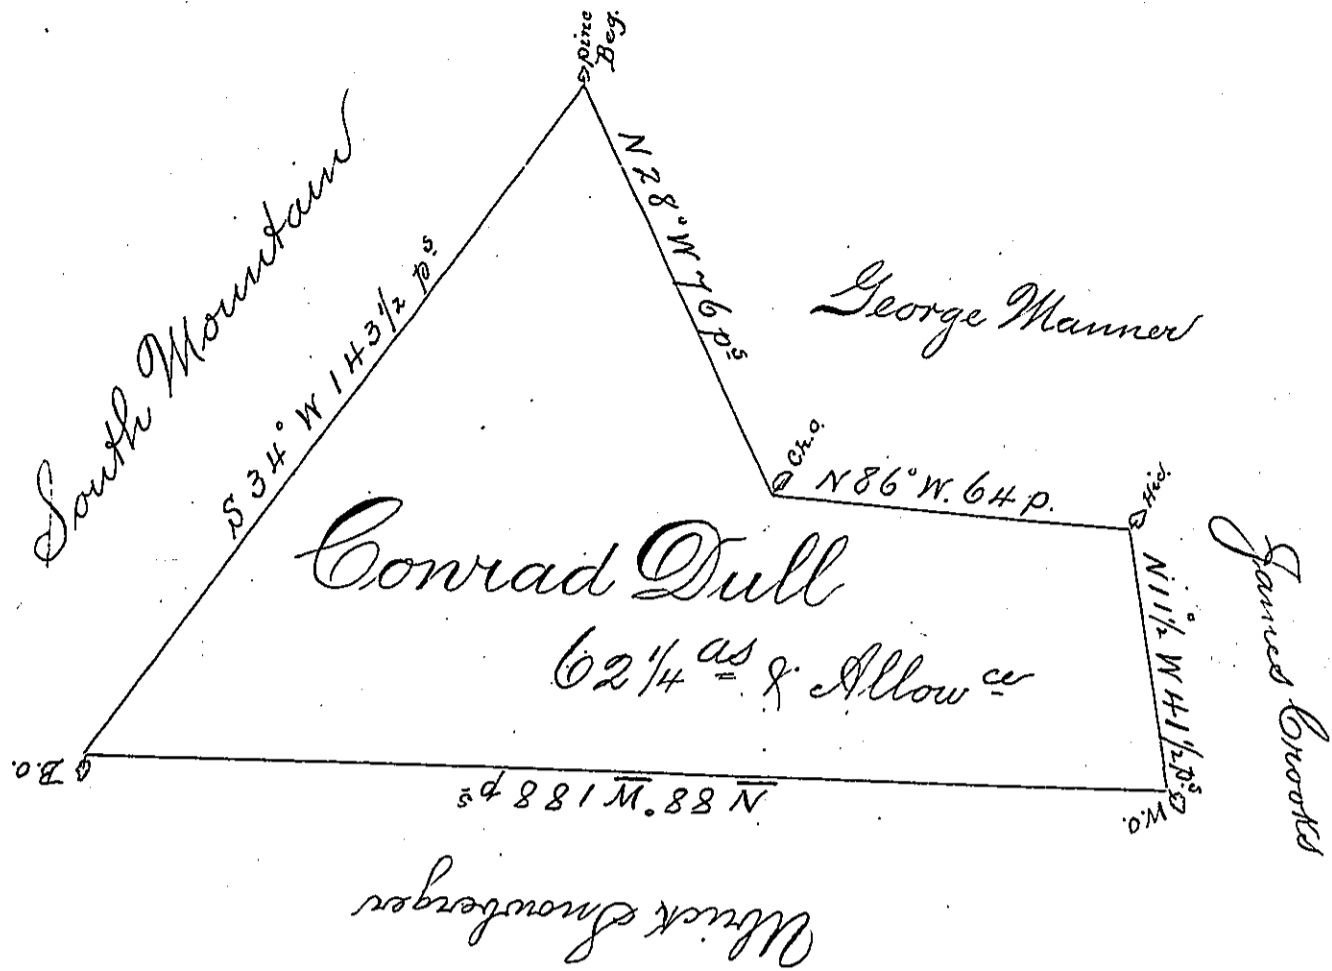 pine
Beg.
South Mountain
S 34° W 143 1/2 pˢ
N 28° W 76 pˢ
George Manner
Ch.o.
N 86° W. 64 p.
Hic.
Conrad Dull
62 1/4 aˢ & Allowᶜᵉ
N 11 1/2° W 41 1/2 pˢ
James Crooks
B.O.
N 88° W 188 pˢ
W.O.
Ulrick Snowberger